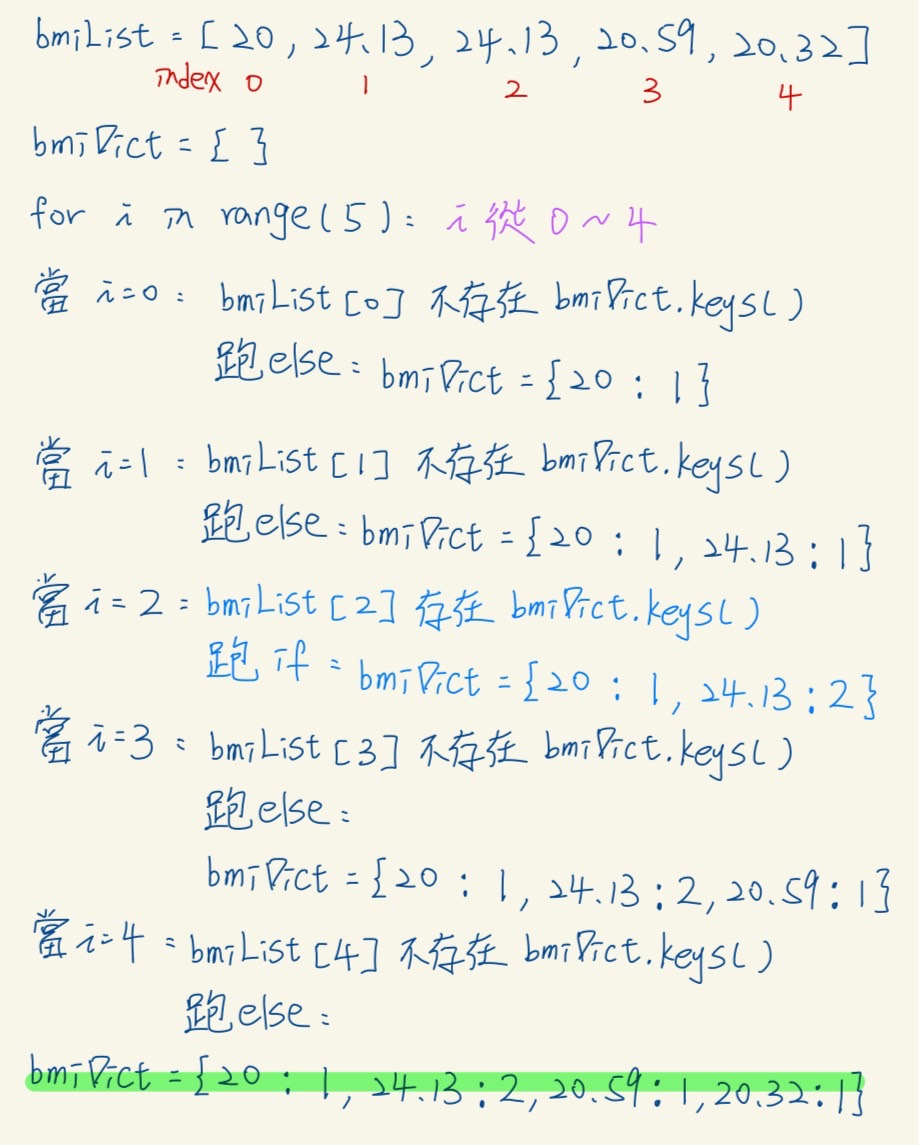 bmiList = [20, 24.13, 24.13, 20.59, 20.32]
index 0 1 2 3 4
bmiDict = { }
for i in range(5): i 從 0 ~ 4
當 i=0: bmiList[0] 不存在 bmiDict.keys()
跑else: bmiDict = {20 : 1}
當 i=1: bmiList[1] 不存在 bmiDict.keys()
跑else: bmiDict = {20 : 1, 24.13 : 1}
當 i=2: bmiList[2] 存在 bmiDict.keys()
跑 if: bmiDict = {20 : 1, 24.13 : 2}
當 i=3: bmiList[3] 不存在 bmiDict.keys()
跑else:
bmiDict = {20 : 1, 24.13 : 2, 20.59 : 1}
當 i=4: bmiList[4] 不存在 bmiDict.keys()
跑else:
bmiDict = {20 : 1, 24.13 : 2, 20.59 : 1, 20.32 : 1}